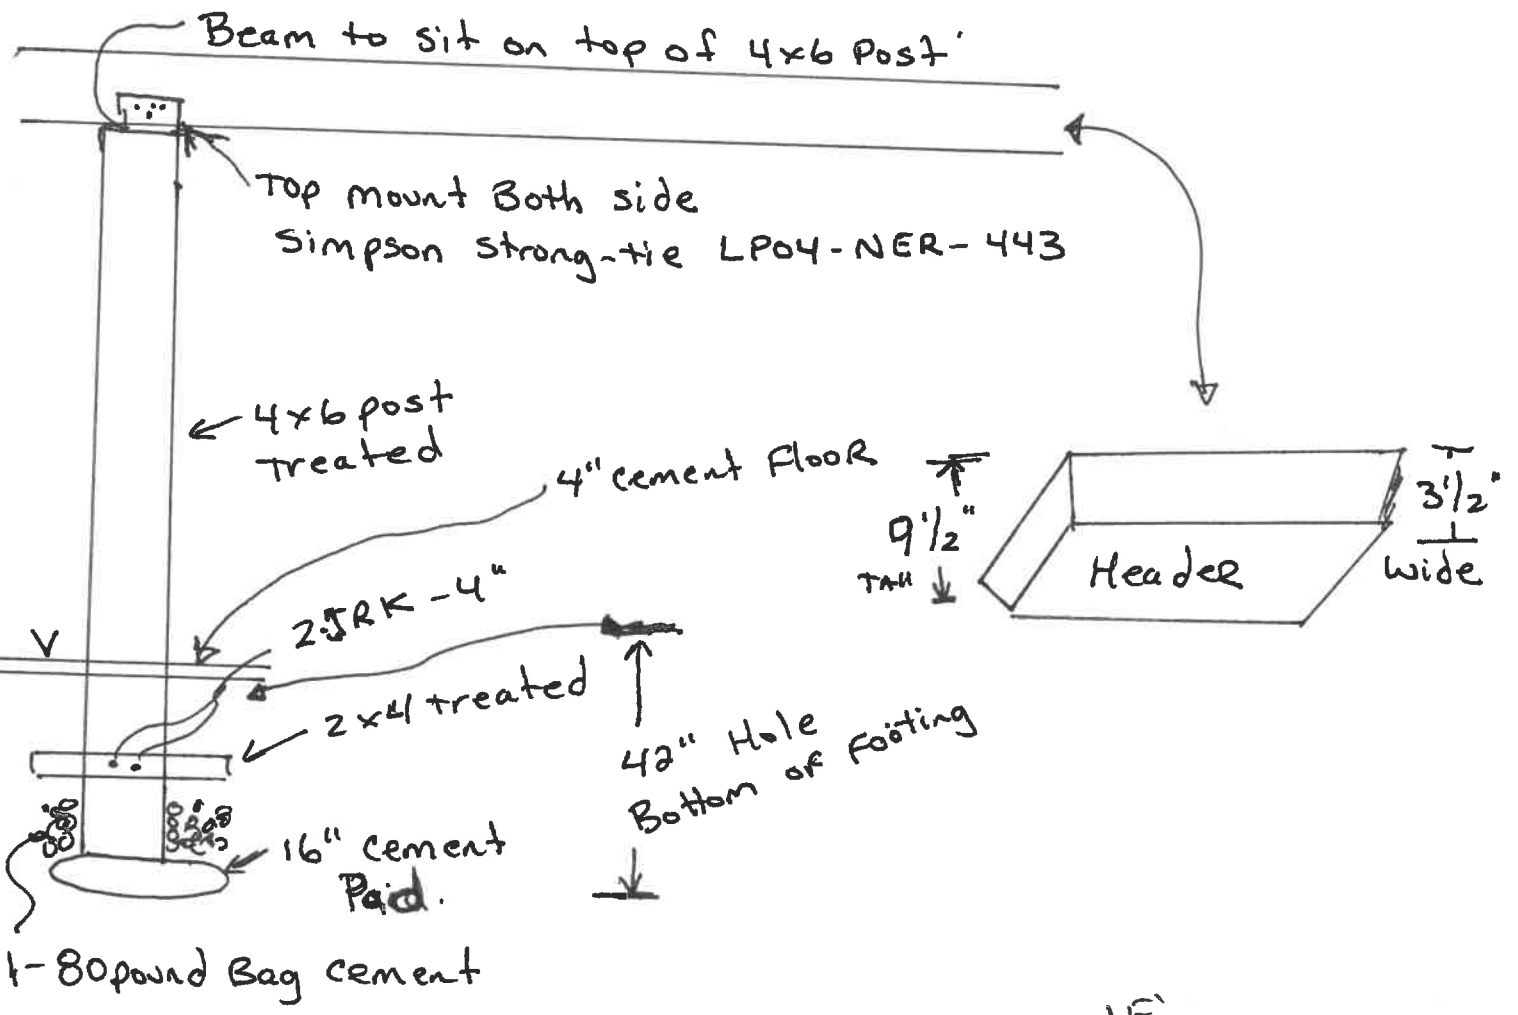 Beam to sit on top of 4x6 Post
Top mount Both side
Simpson strong-tie LPO4-NER-443
4x6 post
treated
4" cement Floor
9 1/2"
TAll
3 1/2"
wide
Header
V
2x4 treated
42" Hole
Bottom of Footing
16" cement
1-80 pound Bag cement